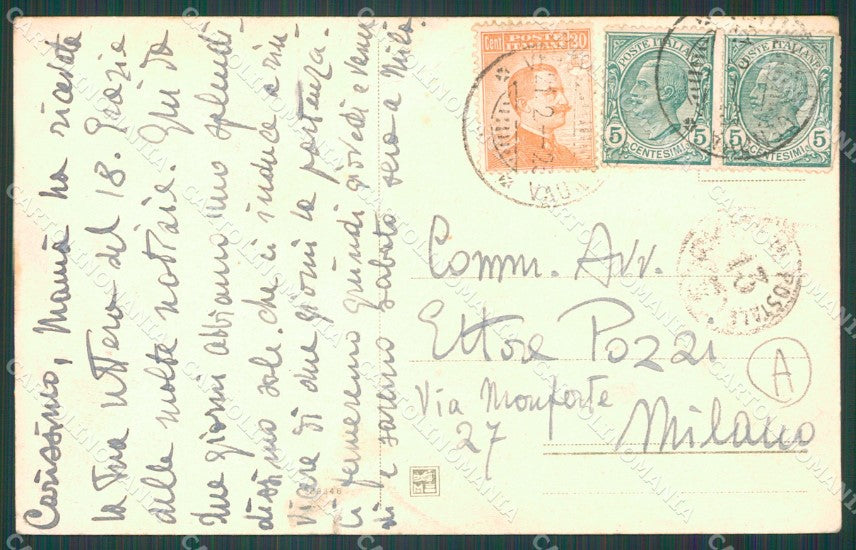 Carissimo, Mamà ha ricevuto
la tua lettera del 18. Grazie
delle molte notizie. Qui da
due giorni abbiamo uno splendi-
dissimo sole che ci induce a rin
viare di due giorni la partenza.
Ci fermeremo quindi giovedì e vener
dì e saremo sabato sera a Milano
Comm. Avv.
Ettore Pozzi
Via Monforte
27
Milano
A
Cent POSTE ITALIANE 20
POSTE ITALIANE
5 5
CENTESIMI
POSTE ITALIANE
5 5
CENTESIMI
POSTALE
CARTOLINOMANIA